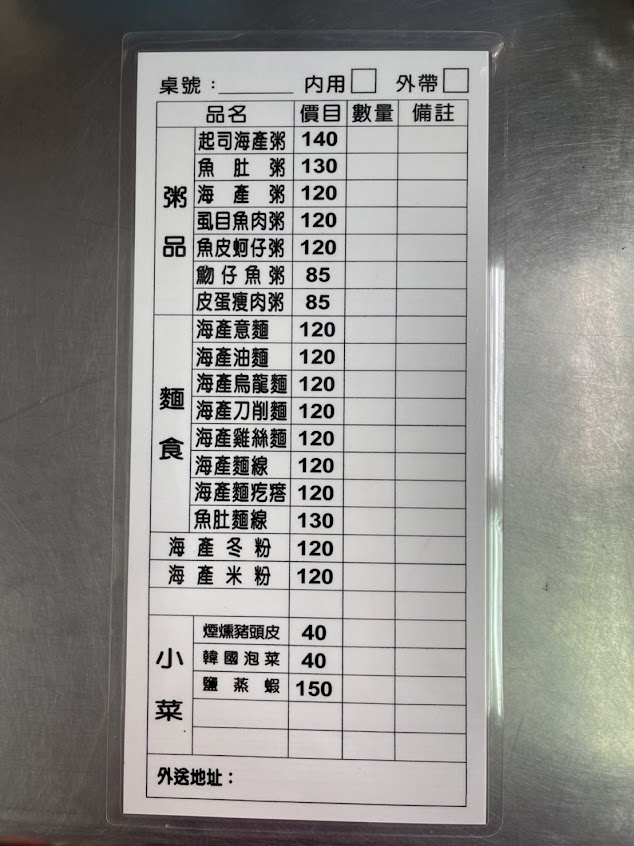 桌號：________ 內用□ 外帶□
品名 價目 數量 備註
粥品
起司海產粥 140
魚肚粥 130
海產粥 120
虱目魚肉粥 120
魚皮蚵仔粥 120
魩仔魚粥 85
皮蛋瘦肉粥 85
麵食
海產意麵 120
海產油麵 120
海產烏龍麵 120
海產刀削麵 120
海產雞絲麵 120
海產麵線 120
海產麵疙瘩 120
魚肚麵線 130
海產冬粉 120
海產米粉 120
小菜
煙燻豬頭皮 40
韓國泡菜 40
鹽蒸蝦 150
外送地址：